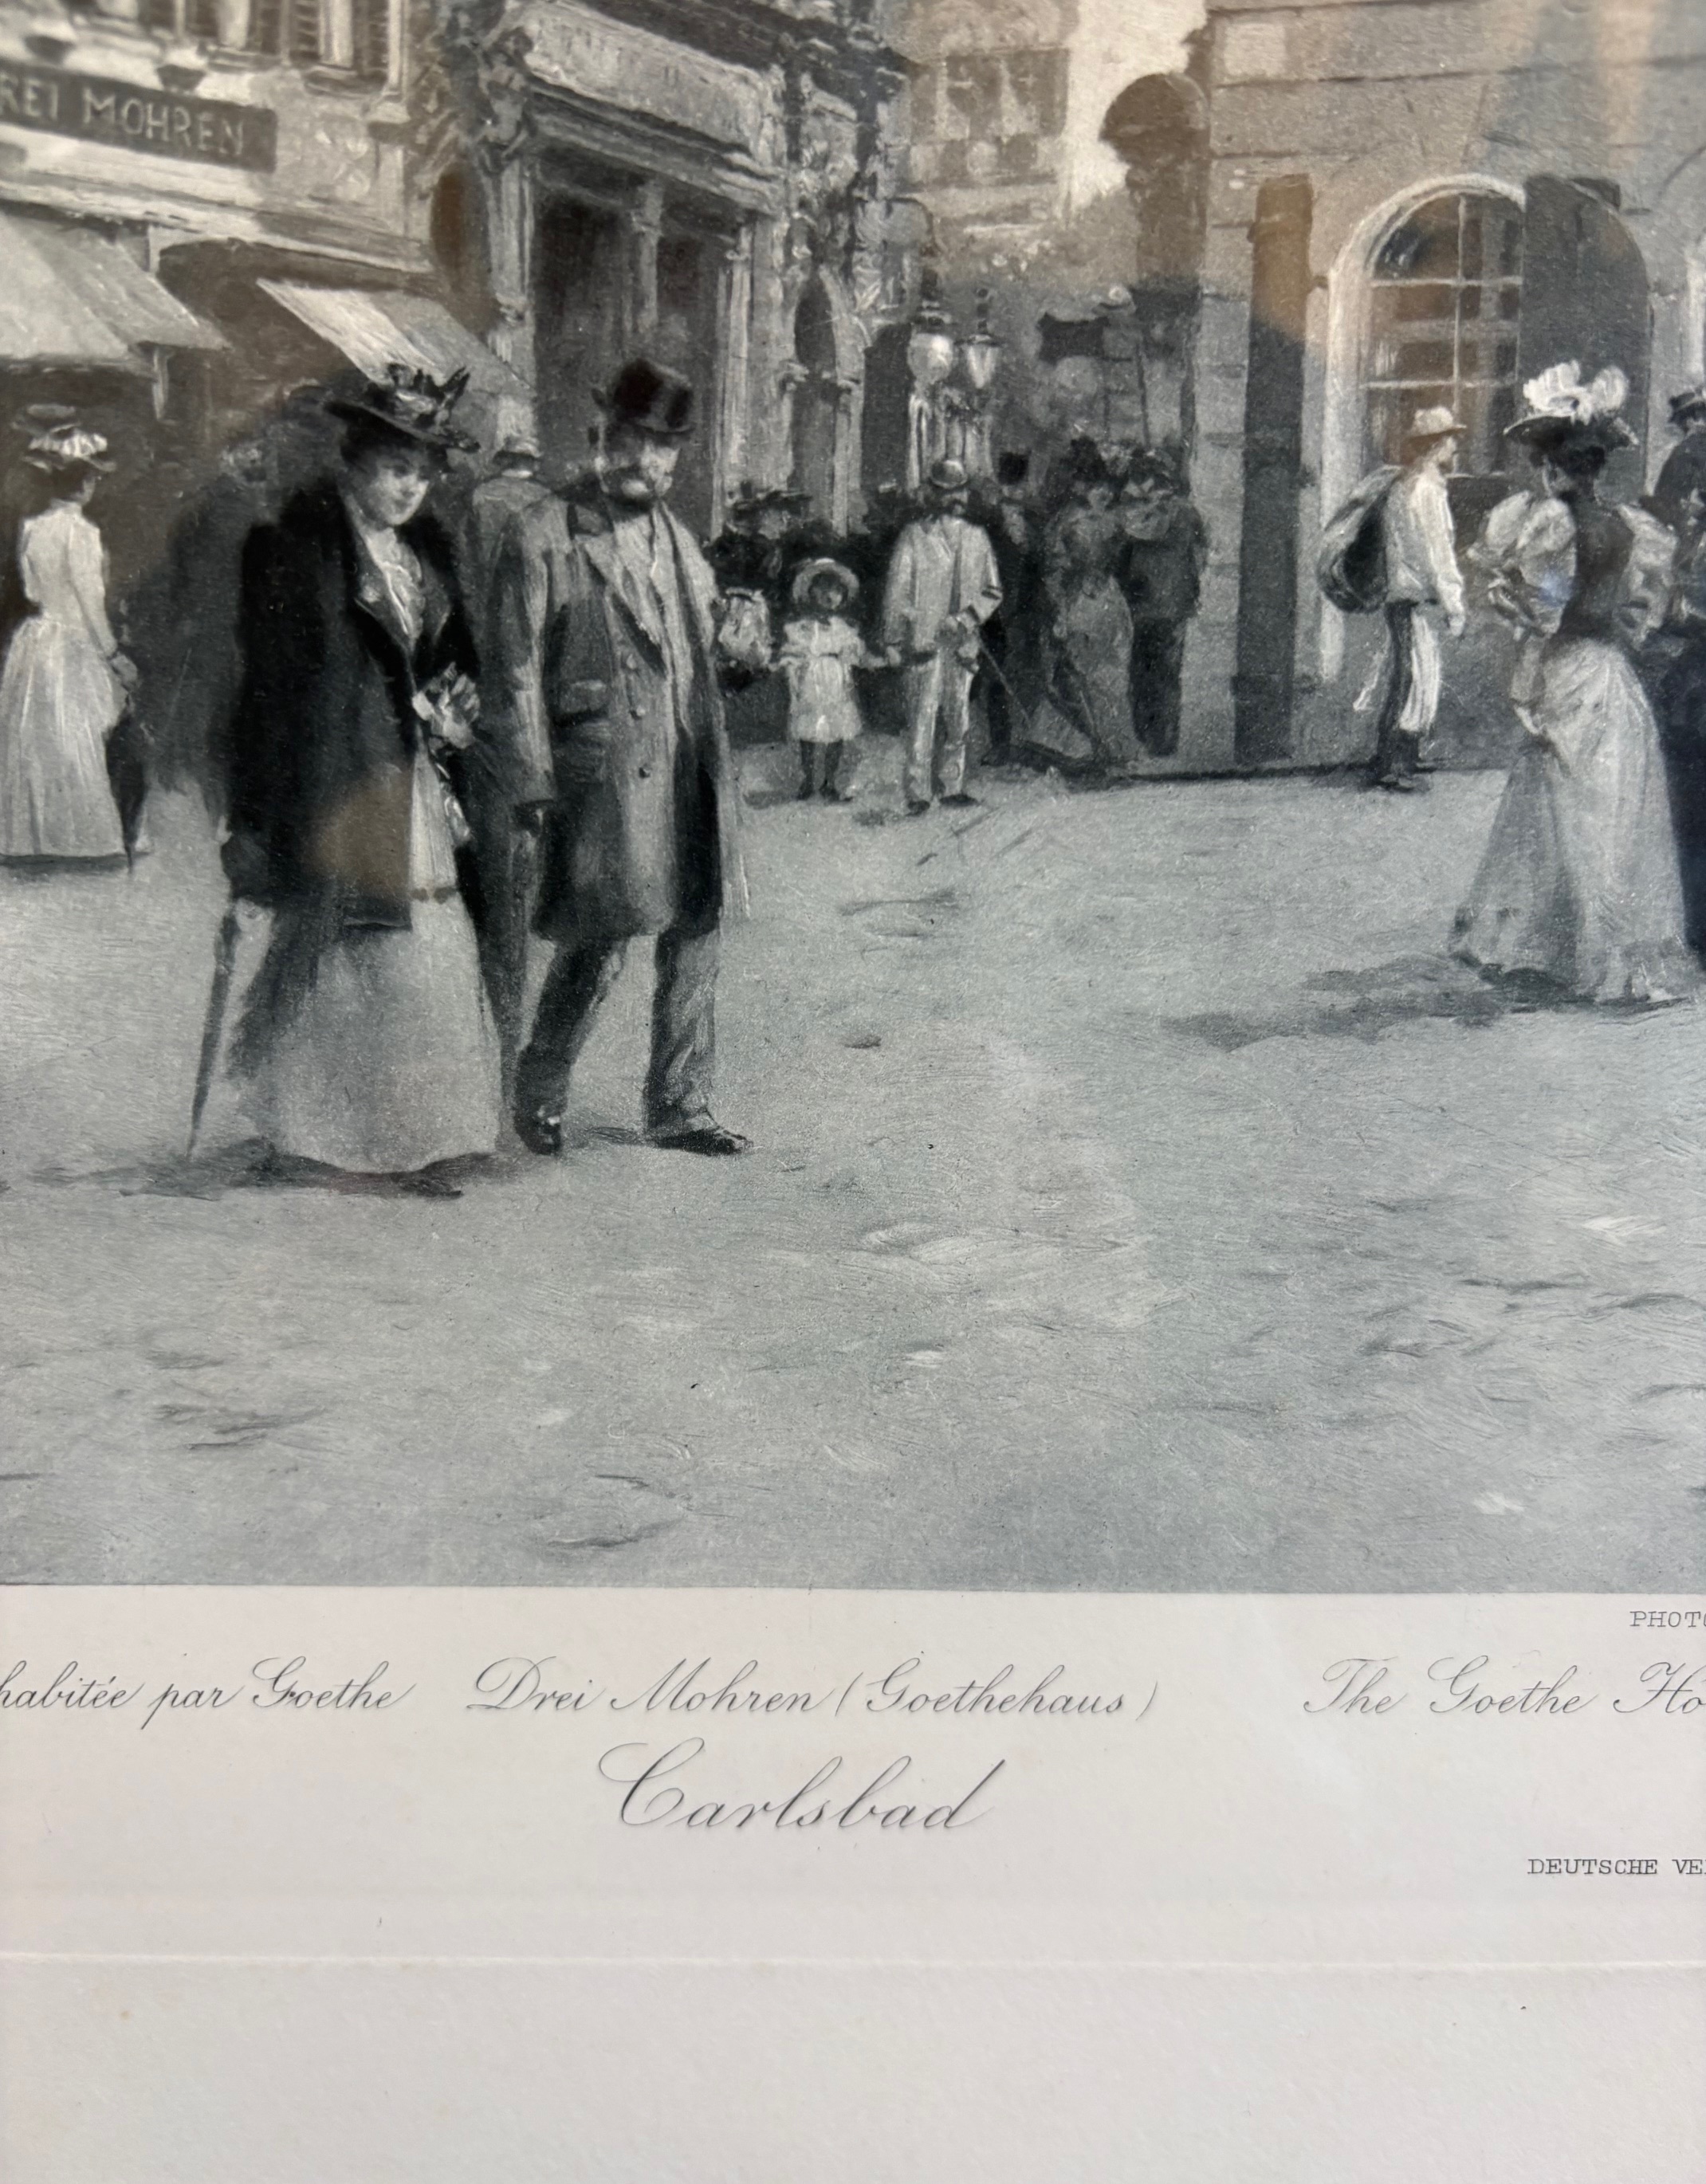 REI MOHREN
PHOTO
habitée par Goethe Drei Mohren (Goethehaus) The Goethe Ho
Carlsbad
DEUTSCHE VE